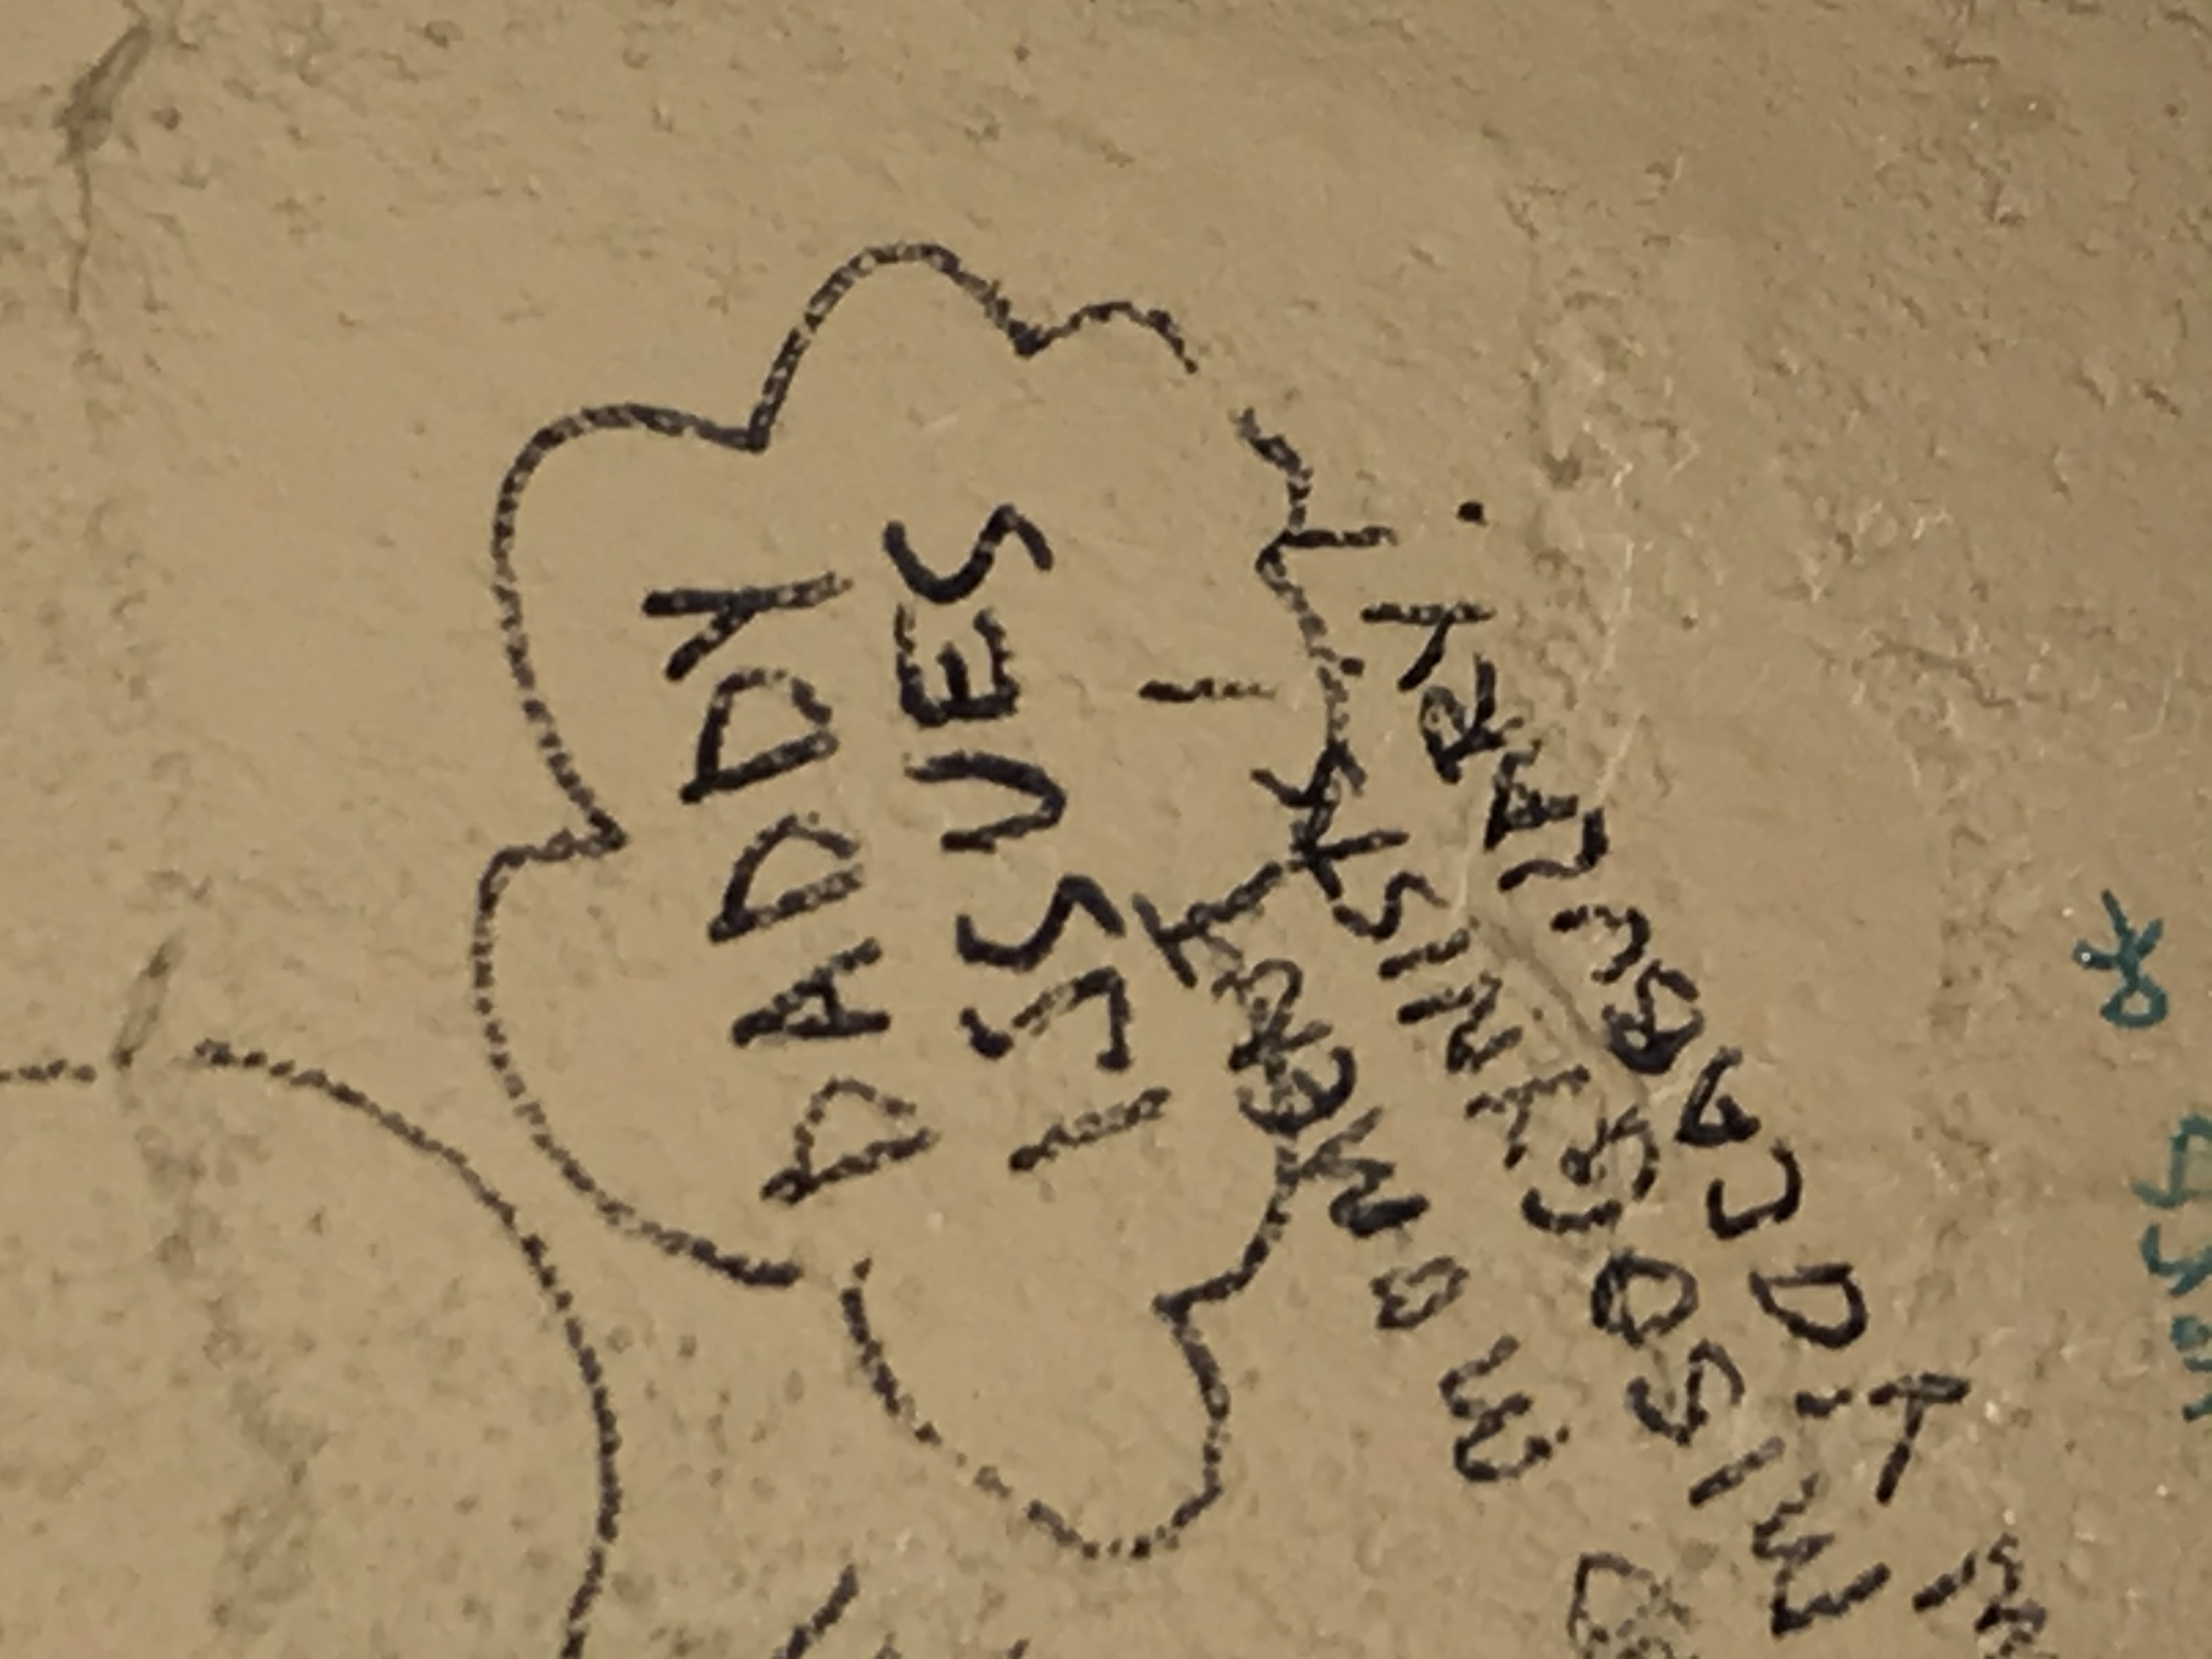 DADDY
ISSUES
MOMENT!
MISOGYNISTS
VOCABULARY!
of